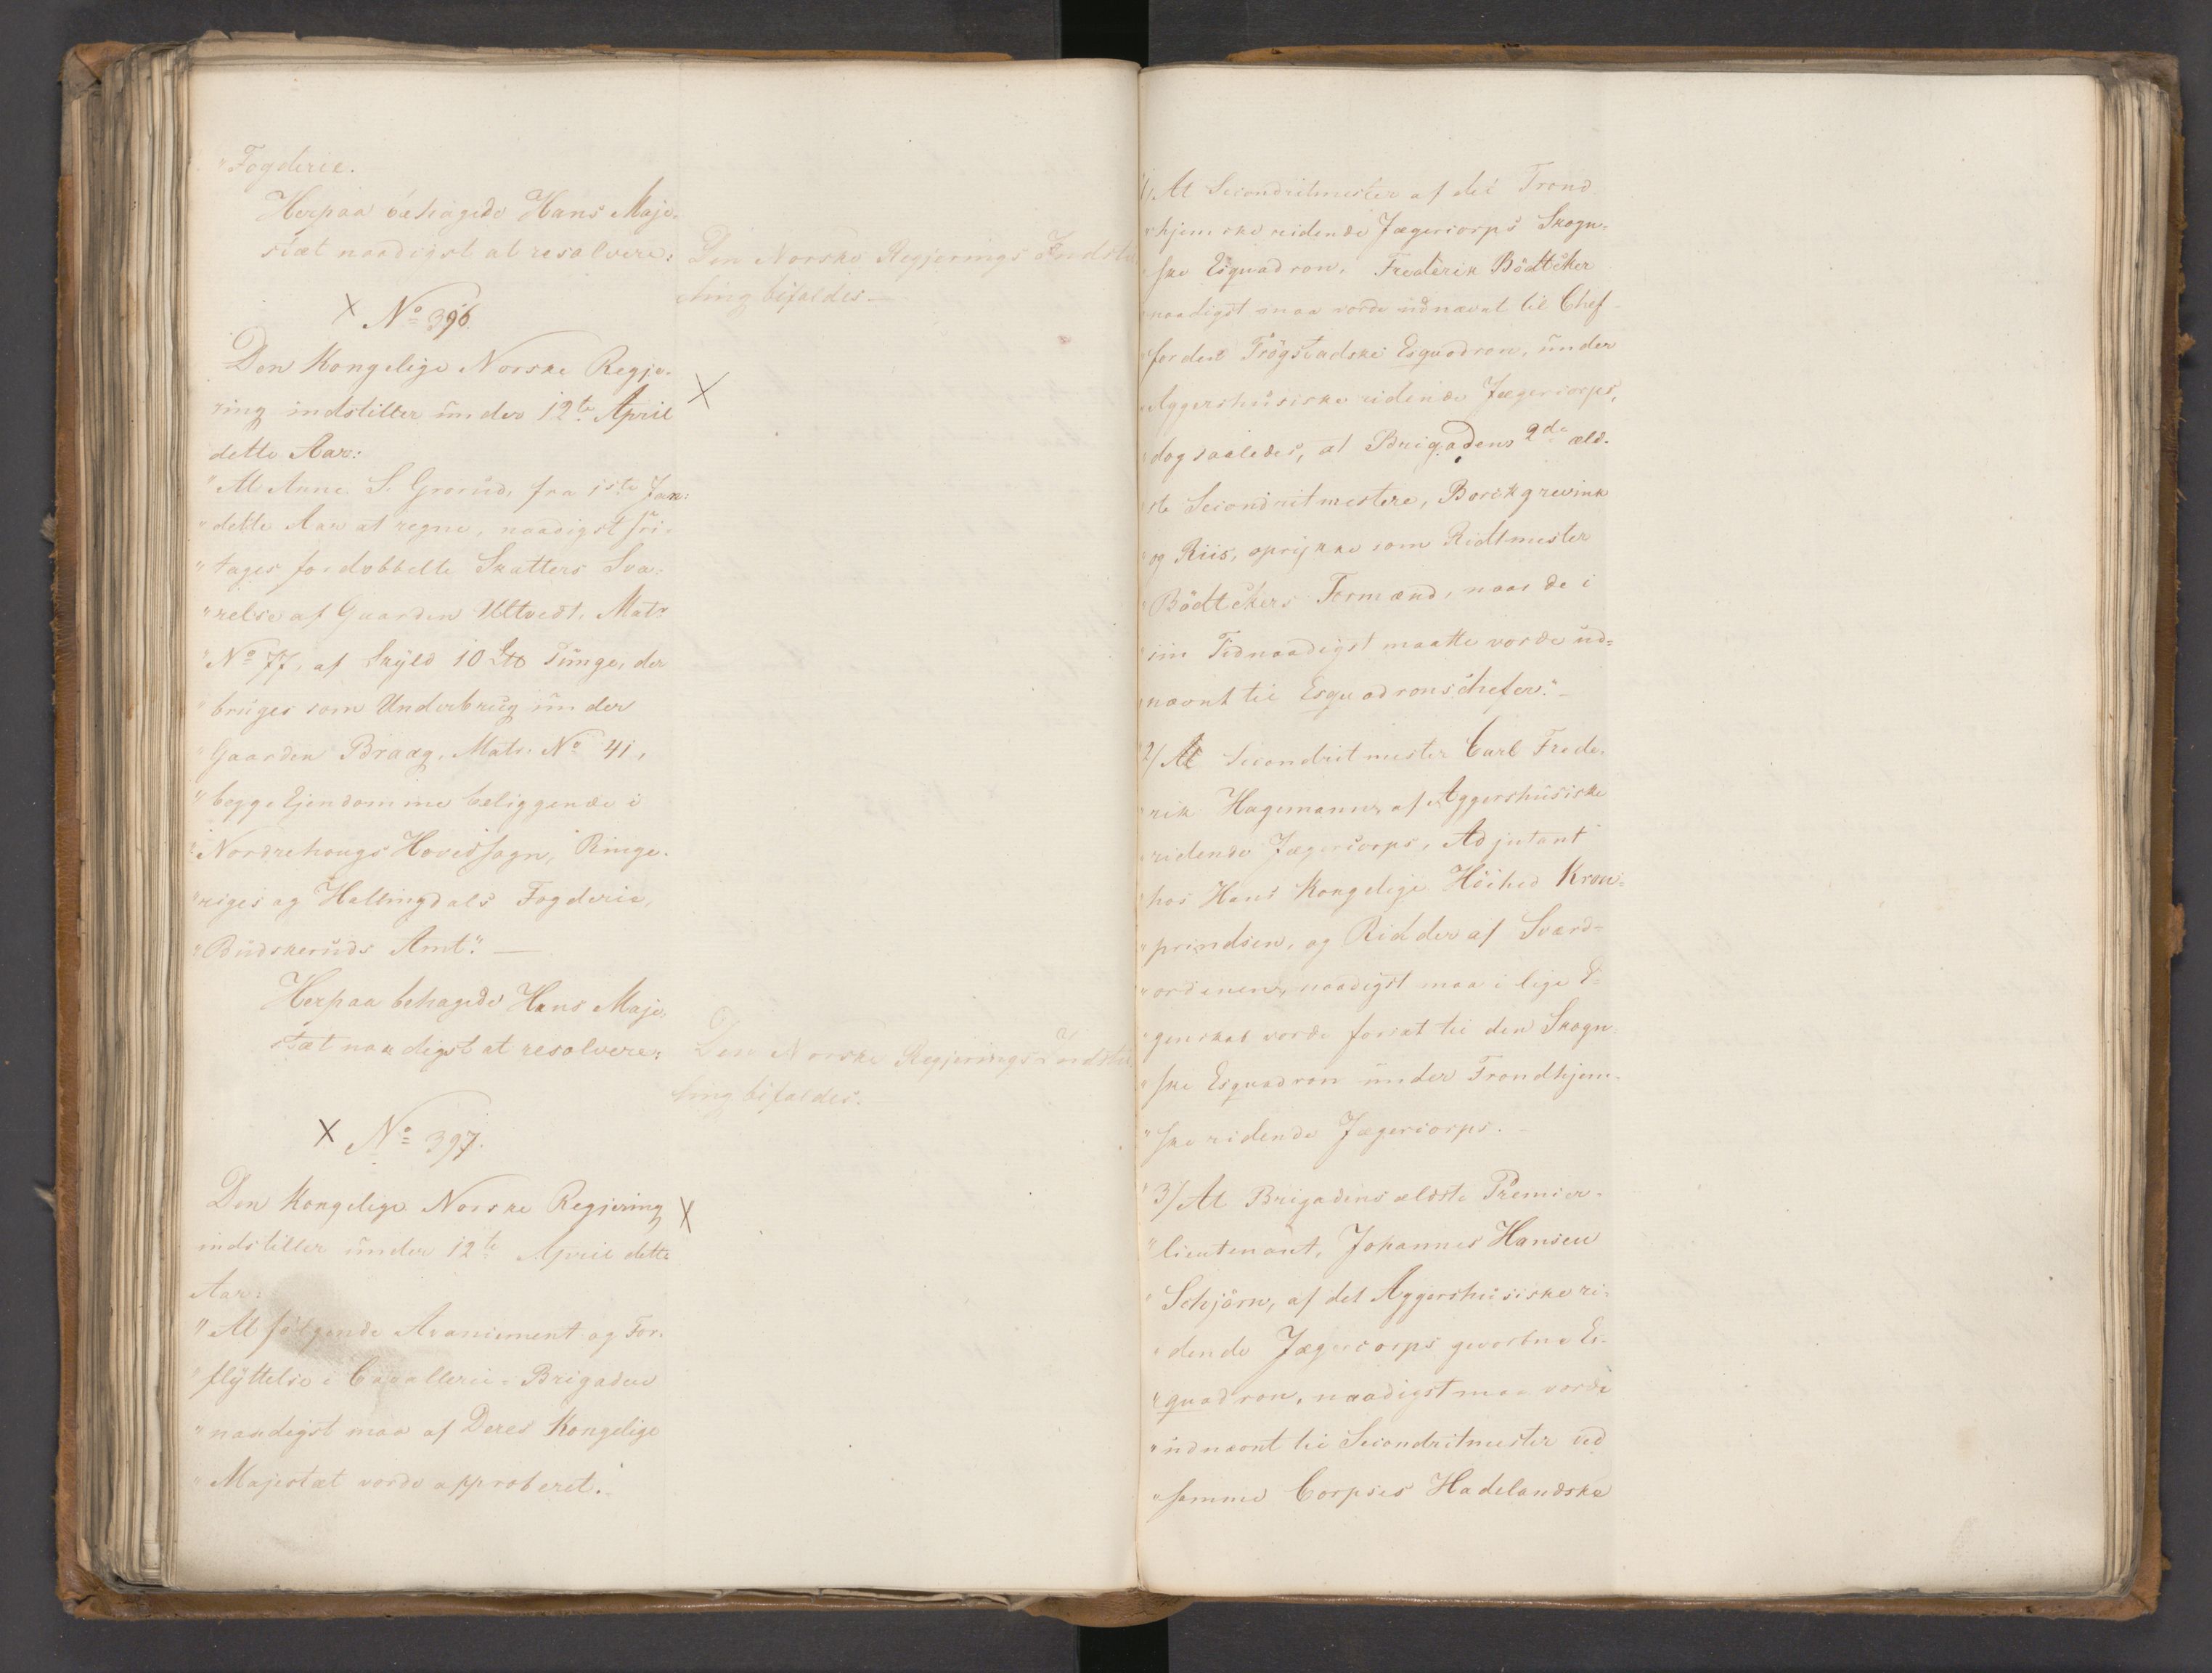 "Fogderie.
Herpaa behagede Hans Maje-
stæt naadigst at resolvere:
Den Norske Regjerings Indstil-
ling bifaldes.—
× No 396.
Den Kongelige Norske Regje-
ring indstiller under 12te April
dette Aar:
×
"At Anne S. Grorud, fra 1ste Jan:
"dette Aar at regne, naadigst fri-
"tages for dobbelte Skatters Sva-
"relse af Gaarden Ultvedt, Matr
"No 77, af Skyld 10 Tunge, der
"bruges som Underbrug under
"Gaarden Braag, Matr. No 41,
"begge Ejendomme beliggende i
"Nordrehougs Hovedsogn, Ringe-
"riges og Hallingdals Fogderie,
"Budskeruds Amt."—
Herpaa behagede Hans Maje-
stæt naadigst at resolvere:
Den Norske Regjerings Indstil-
ling bifaldes.—
× No 397.
Den Kongelige Norske Regjering
indstiller under 12te April dette
Aar:
×
"At følgende Avancement og For-
"flyttelse i Cavallerie-Brigaden
"naadigst maa af Deres Kongelige
"Majestæt vorde approberet.
"1/ At Secondritmester af det Trond-
"hjemske ridende Jægercorps Skogn-
"ske Esquadron, Frederik Bödtcker
"naadigst maa vorde udnævnt til Chef
"for den Trögstadske Esquadron, under
"Aggershusiske ridende Jægercorps,
"dog saaledes, at Brigadens 2de æld-
"ste Secondritmestere, Borchgrevink
"og Riis, oprykke som Ridtmester
"Bödtckers Formænd, naar de i
"sin Tid naadigst maatte vorde ud-
"nævnt til Esquadronschefer."—
"2/ At Secondritmester Carl Frede-
"rik Hagemann, af Aggershusiske
"ridende Jægercorps, Adjutant
"hos Hans Kongelige Höihed Kron-
"prindsen, og Ridder af Sværd-
"ordenen, naadigst maa i lige E-
"genskab vorde forsat til den Skogn-
"ske Esquadron under Trondhjem-
"ske ridende Jægercorps.—
"3/ At Brigadens ældste Premier-
"lieutenant, Johannes Hansen
"Schjörn, af det Aggershusiske ri-
"dende Jægercorps gevorbne Es-
"quadron, naadigst maa vorde
"udnævnt til Secondritmester ved
"samme Corpses Hadelandske